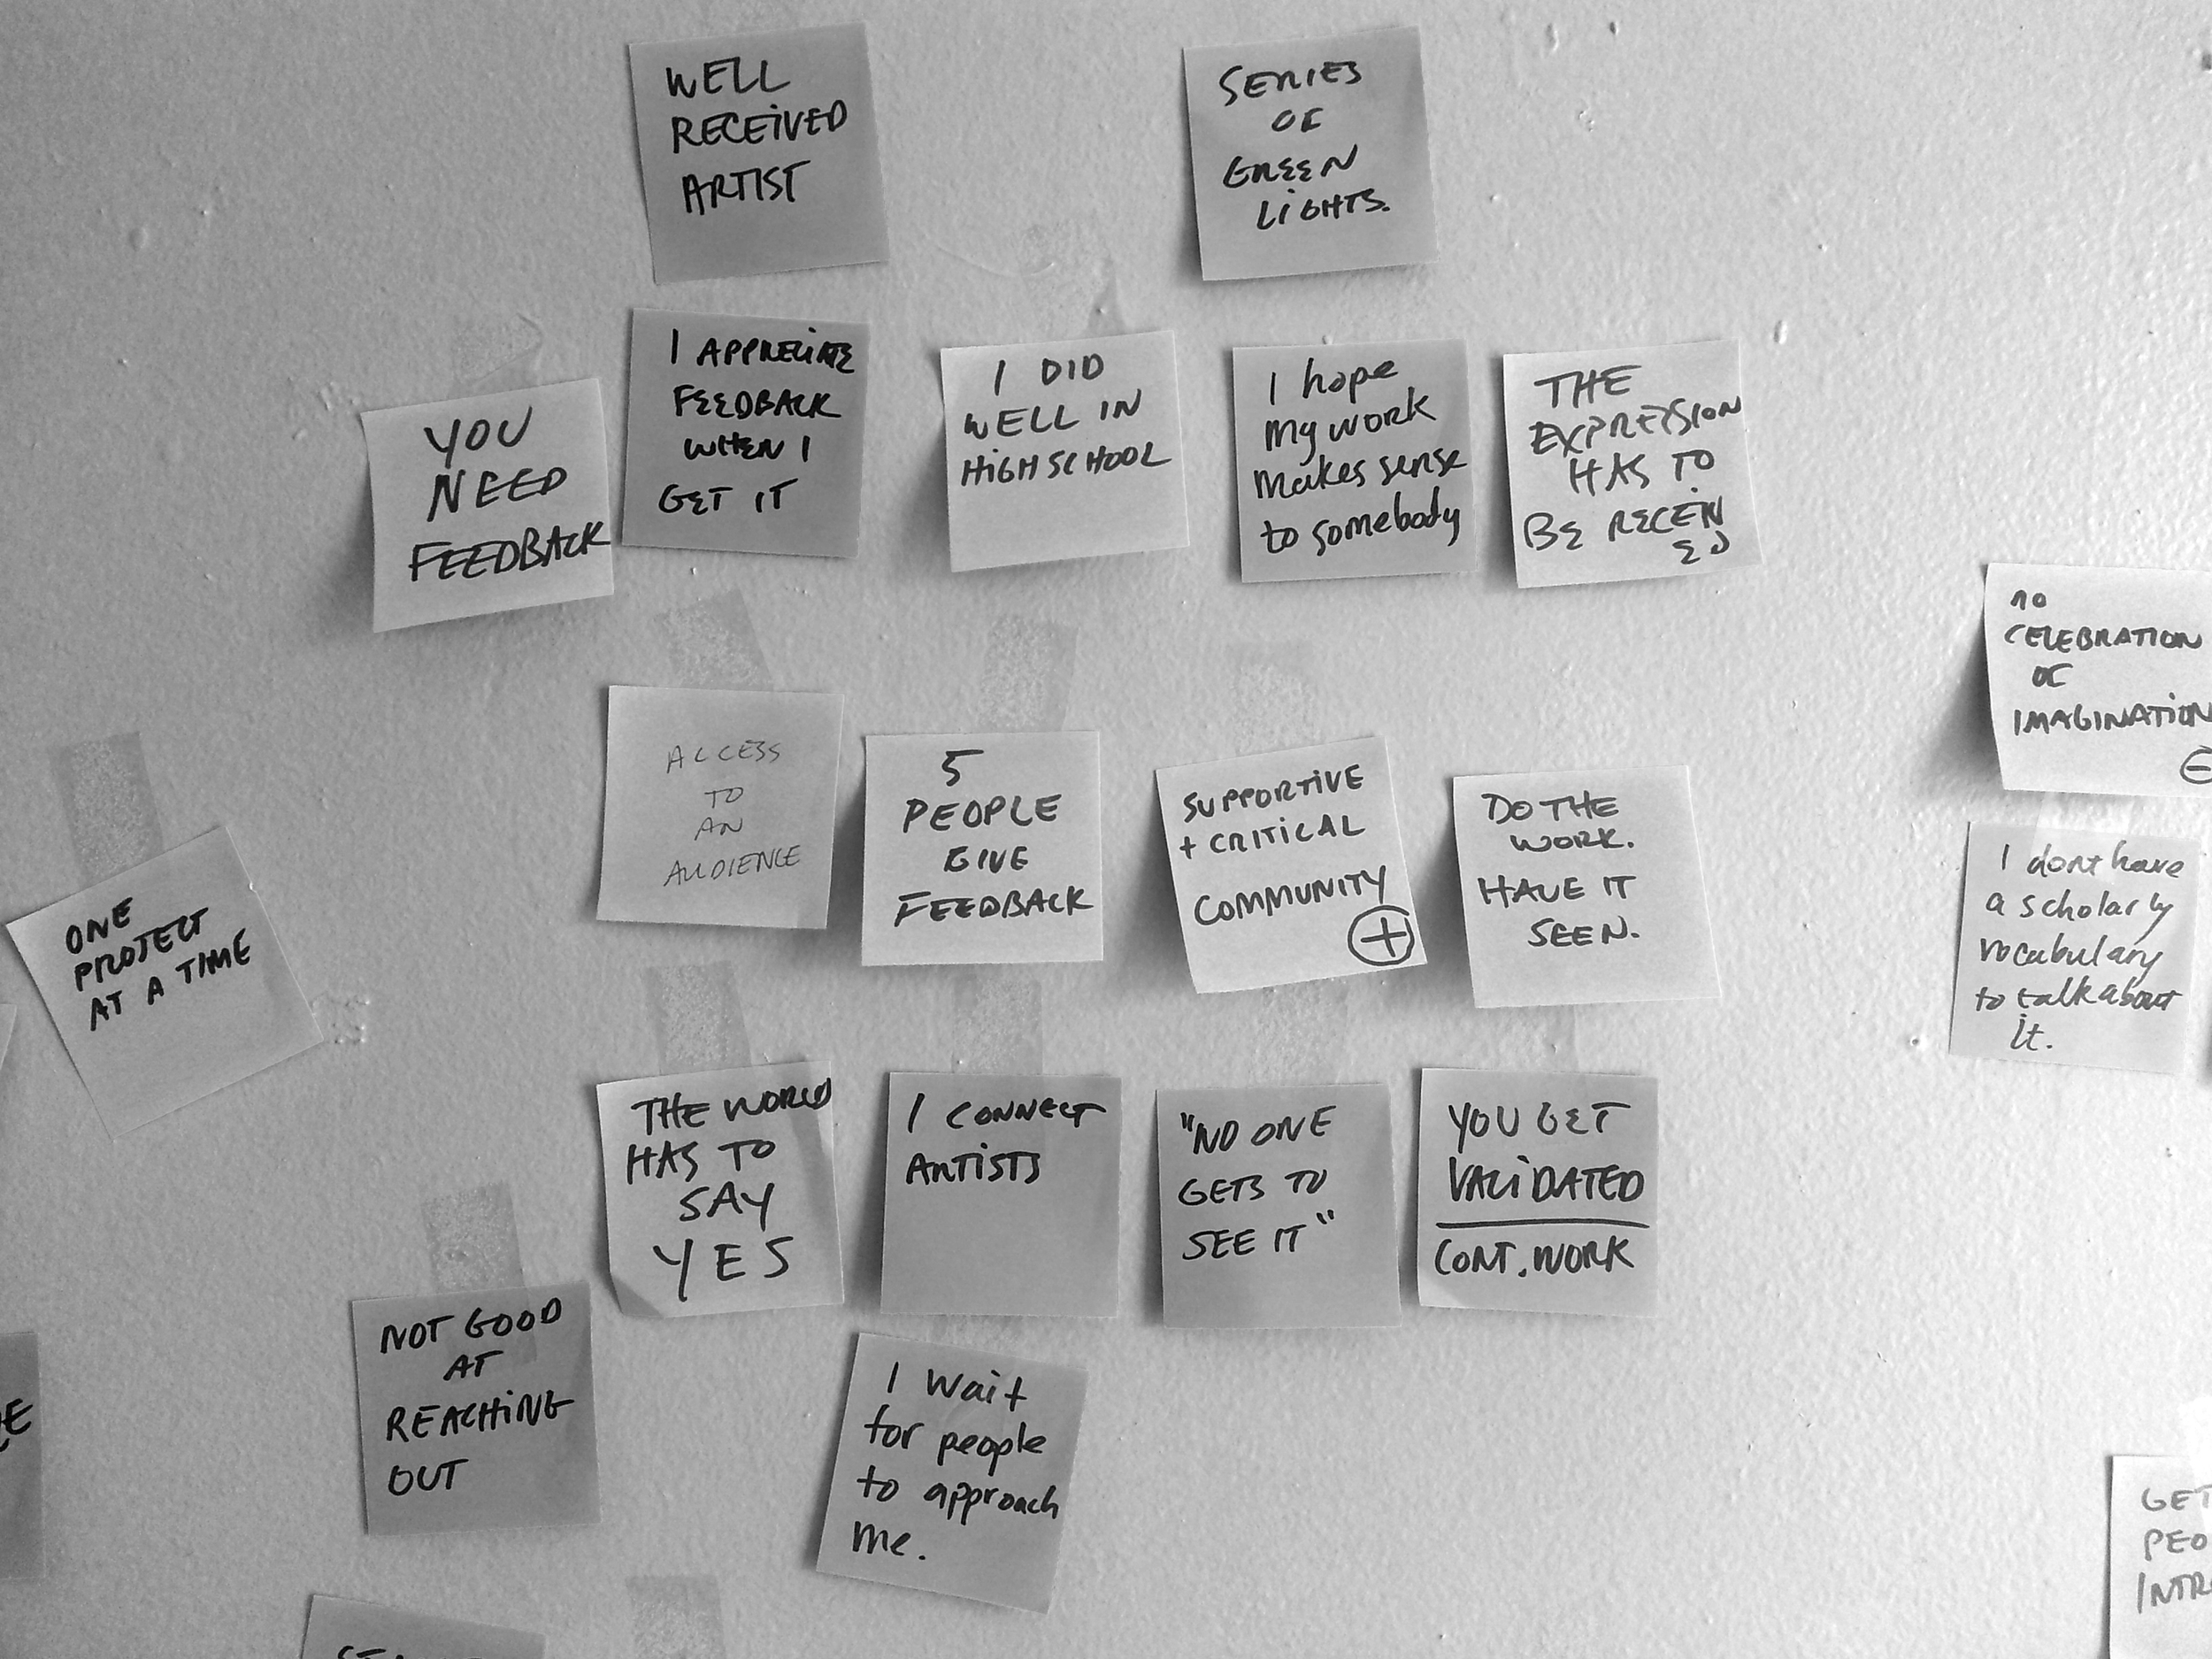 WELL
RECEIVED
ARTIST
SERIES
OF
GREEN
LIGHTS.
YOU
NEED
FEEDBACK
I APPRECIATE
FEEDBACK
WHEN I
GET IT
I DID
WELL IN
HIGH SCHOOL
I hope
my work
makes sense
to somebody
THE
EXPRESSION
HAS TO
BE RECEIV
ED
NO
CELEBRATION
OF
IMAGINATION
⊖
ACCESS
TO
AN
AUDIENCE
5
PEOPLE
GIVE
FEEDBACK
SUPPORTIVE
+ CRITICAL
COMMUNITY
⊕
DO THE
WORK.
HAVE IT
SEEN.
ONE
PROJECT
AT A TIME
I dont have
a scholarly
vocabulary
to talk about
it.
THE WORLD
HAS TO
SAY
YES
I CONNECT
ARTISTS
"NO ONE
GETS TO
SEE IT"
YOU GET
VALIDATED
CONT. WORK
NOT GOOD
AT
REACHING
OUT
I wait
for people
to approach
me.
GET
PEO
INTR